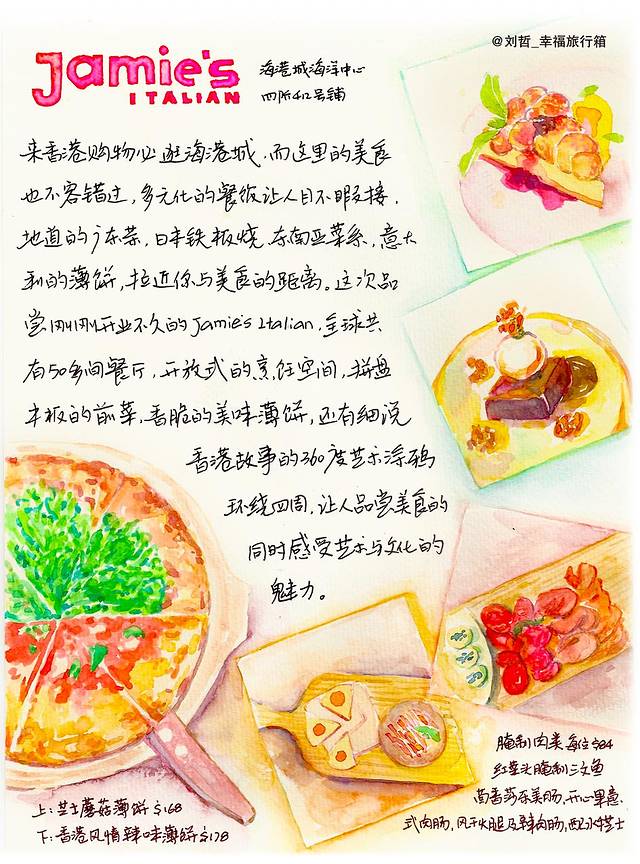 @刘哲_幸福旅行箱
Jamie's
ITALIAN
海港城海洋中心
四阶412号铺
来香港购物必逛海港城,而这里的美食
也不容错过,多元化的餐饭让人目不暇接,
地道的广东菜,日本铁板烧,东南亚菜系,意大
利的薄饼,拉近你与美食的距离。这次品
尝刚刚开业不久的Jamie's Italian,全球共
有50多间餐厅,开放式的烹饪空间,拼盘
木板的前菜,香脆的美味薄饼,还有细说
香港故事的360度艺术涂鸦
环绕四周,让人品尝美食的
同时感受艺术与文化的
魅力。
上:芝士蘑菇薄饼 $168
下:香港风情辣味薄饼 $178
腌制肉类每位$84
红菜头腌制三文鱼
茴香莎乐美肠,开心果意
式肉肠,风干火腿及辣肉肠,配水牛芝士